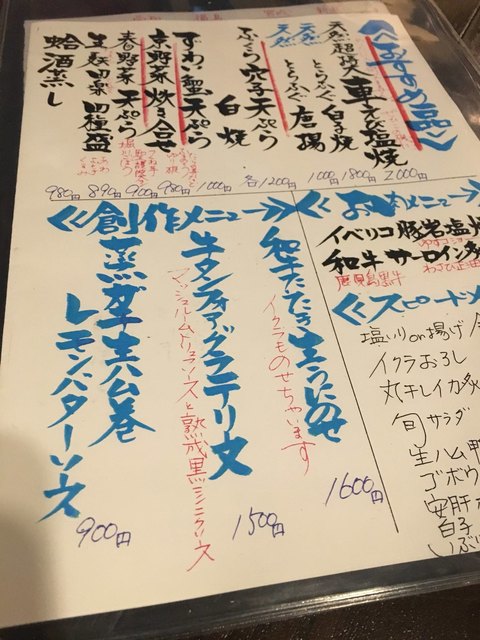 ≪おすすめ品≫
天然超特大車えび塩焼 2000円
天然とらふぐ白子焼 1800円
天然とらふぐ唐揚 1000円
ふっくら穴子天ぷら 白焼 各1200円
ずわい蟹天ぷら 1000円
京野菜炊き合せ 980円
春野菜天ぷら 900円
生麸田楽四種盛 890円
あわ
よもぎ
蛤酒蒸し 980円
≪お肉メニュー
イベリコ豚岩塩焼
ゆずコショー
和牛サーロイン
鹿児島黒牛
わさび正油
≪創作メニュー≫
和牛たたき生うにのせ
イクラものせちゃいます
1600円
牛タンフォアグラテリーヌ
マッシュルームトリュフソースと熟成黒ニンニクソース
1500円
蒸ガキ生ハム巻
レモンバターソース
900円
≪スピードメ
塩いりon揚げ
イクラおろし
丸干しイカ炙
旬サラダ
生ハム
ゴボウ
安肝
白子
いぶり